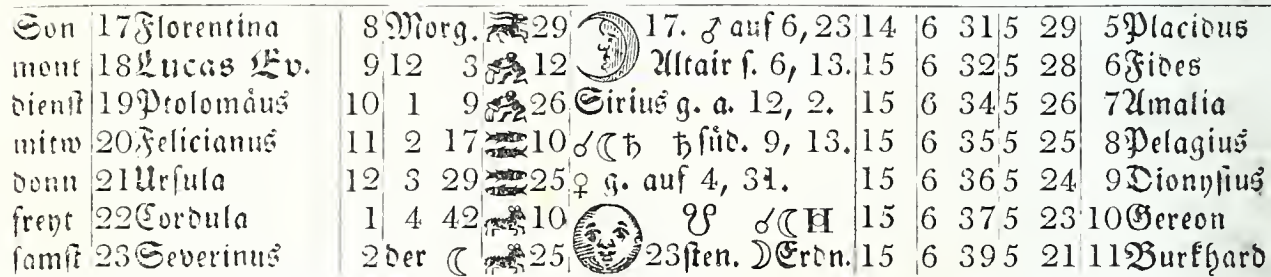 Son 17 Florentina 8 Morg. 29 17. ♂ auf 6, 23 14 6 31 5 29 5 Placidus
mont 18 Lucas Ev. 9 12 3 12 Altair s. 6, 13. 15 6 32 5 28 6 Fides
dienst 19 Ptolomäus 10 1 9 26 Sirius g. a. 12, 2. 15 6 34 5 26 7 Amalia
mitw 20 Felicianus 11 2 17 10 ☌☾♄ ♄ süd. 9, 13. 15 6 35 5 25 8 Pelagius
donn 21 Ursula 12 3 29 25 ♀ g. auf 4, 31. 15 6 36 5 24 9 Dionysius
freyt 22 Cordula 1 4 42 10 ☋ ☌☾♅ 15 6 37 5 23 10 Gereon
samst 23 Severinus 2 der ☾ 25 23sten. ☽ Erdn. 15 6 39 5 21 11 Burkhard